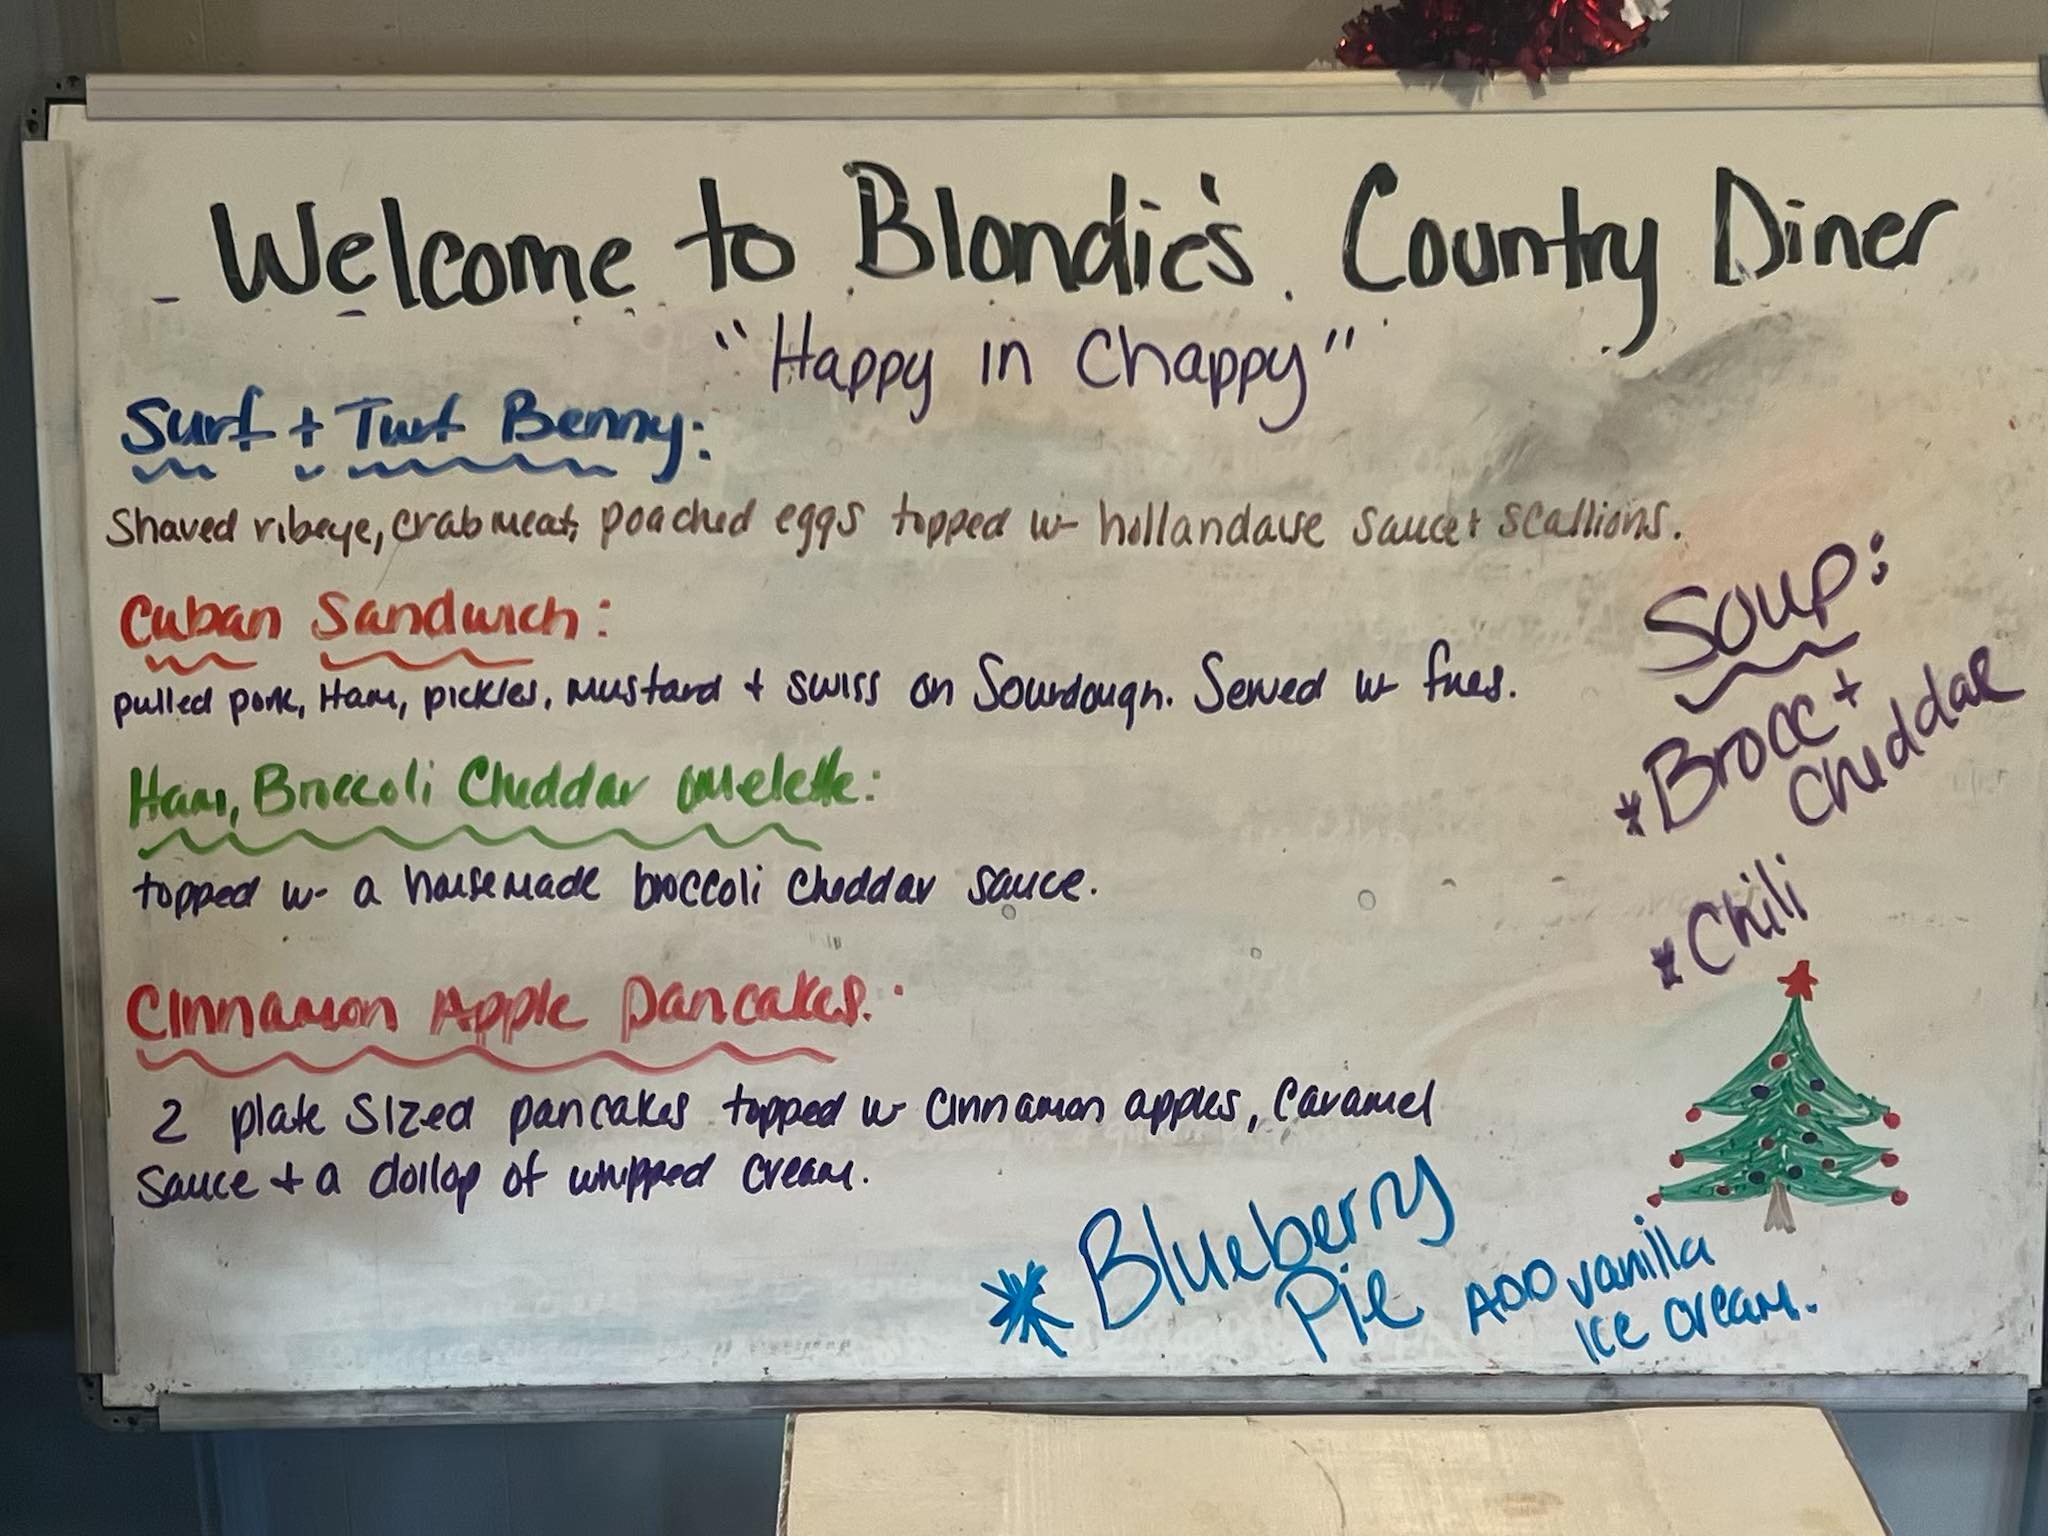 Welcome to Blondie's Country Diner
"Happy in Chappy"
Surf + Turf Benny:
Shaved ribeye, crab meat, poached eggs topped w- hollandaise sauce + scallions.
Cuban Sandwich:
pulled pork, Ham, pickles, mustard + swiss on Sourdough. Served w- fries.
Ham, Broccoli Cheddar omelette:
topped w- a housemade broccoli cheddar sauce.
Cinnamon Apple Pancakes:
2 plate sized pancakes topped w- cinnamon apples, caramel
sauce + a dollop of whipped cream.
Soup:
* Brocc +
Cheddar
* Chili
* Blueberry
Pie ADD vanilla
ice cream.